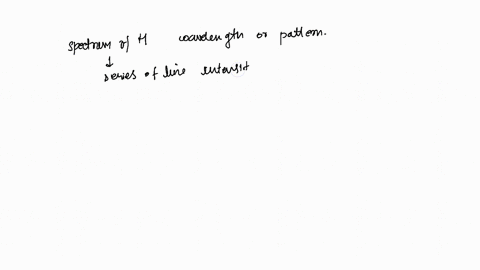 spectrum of H wavelength or pattern.
↓
series of line intensit